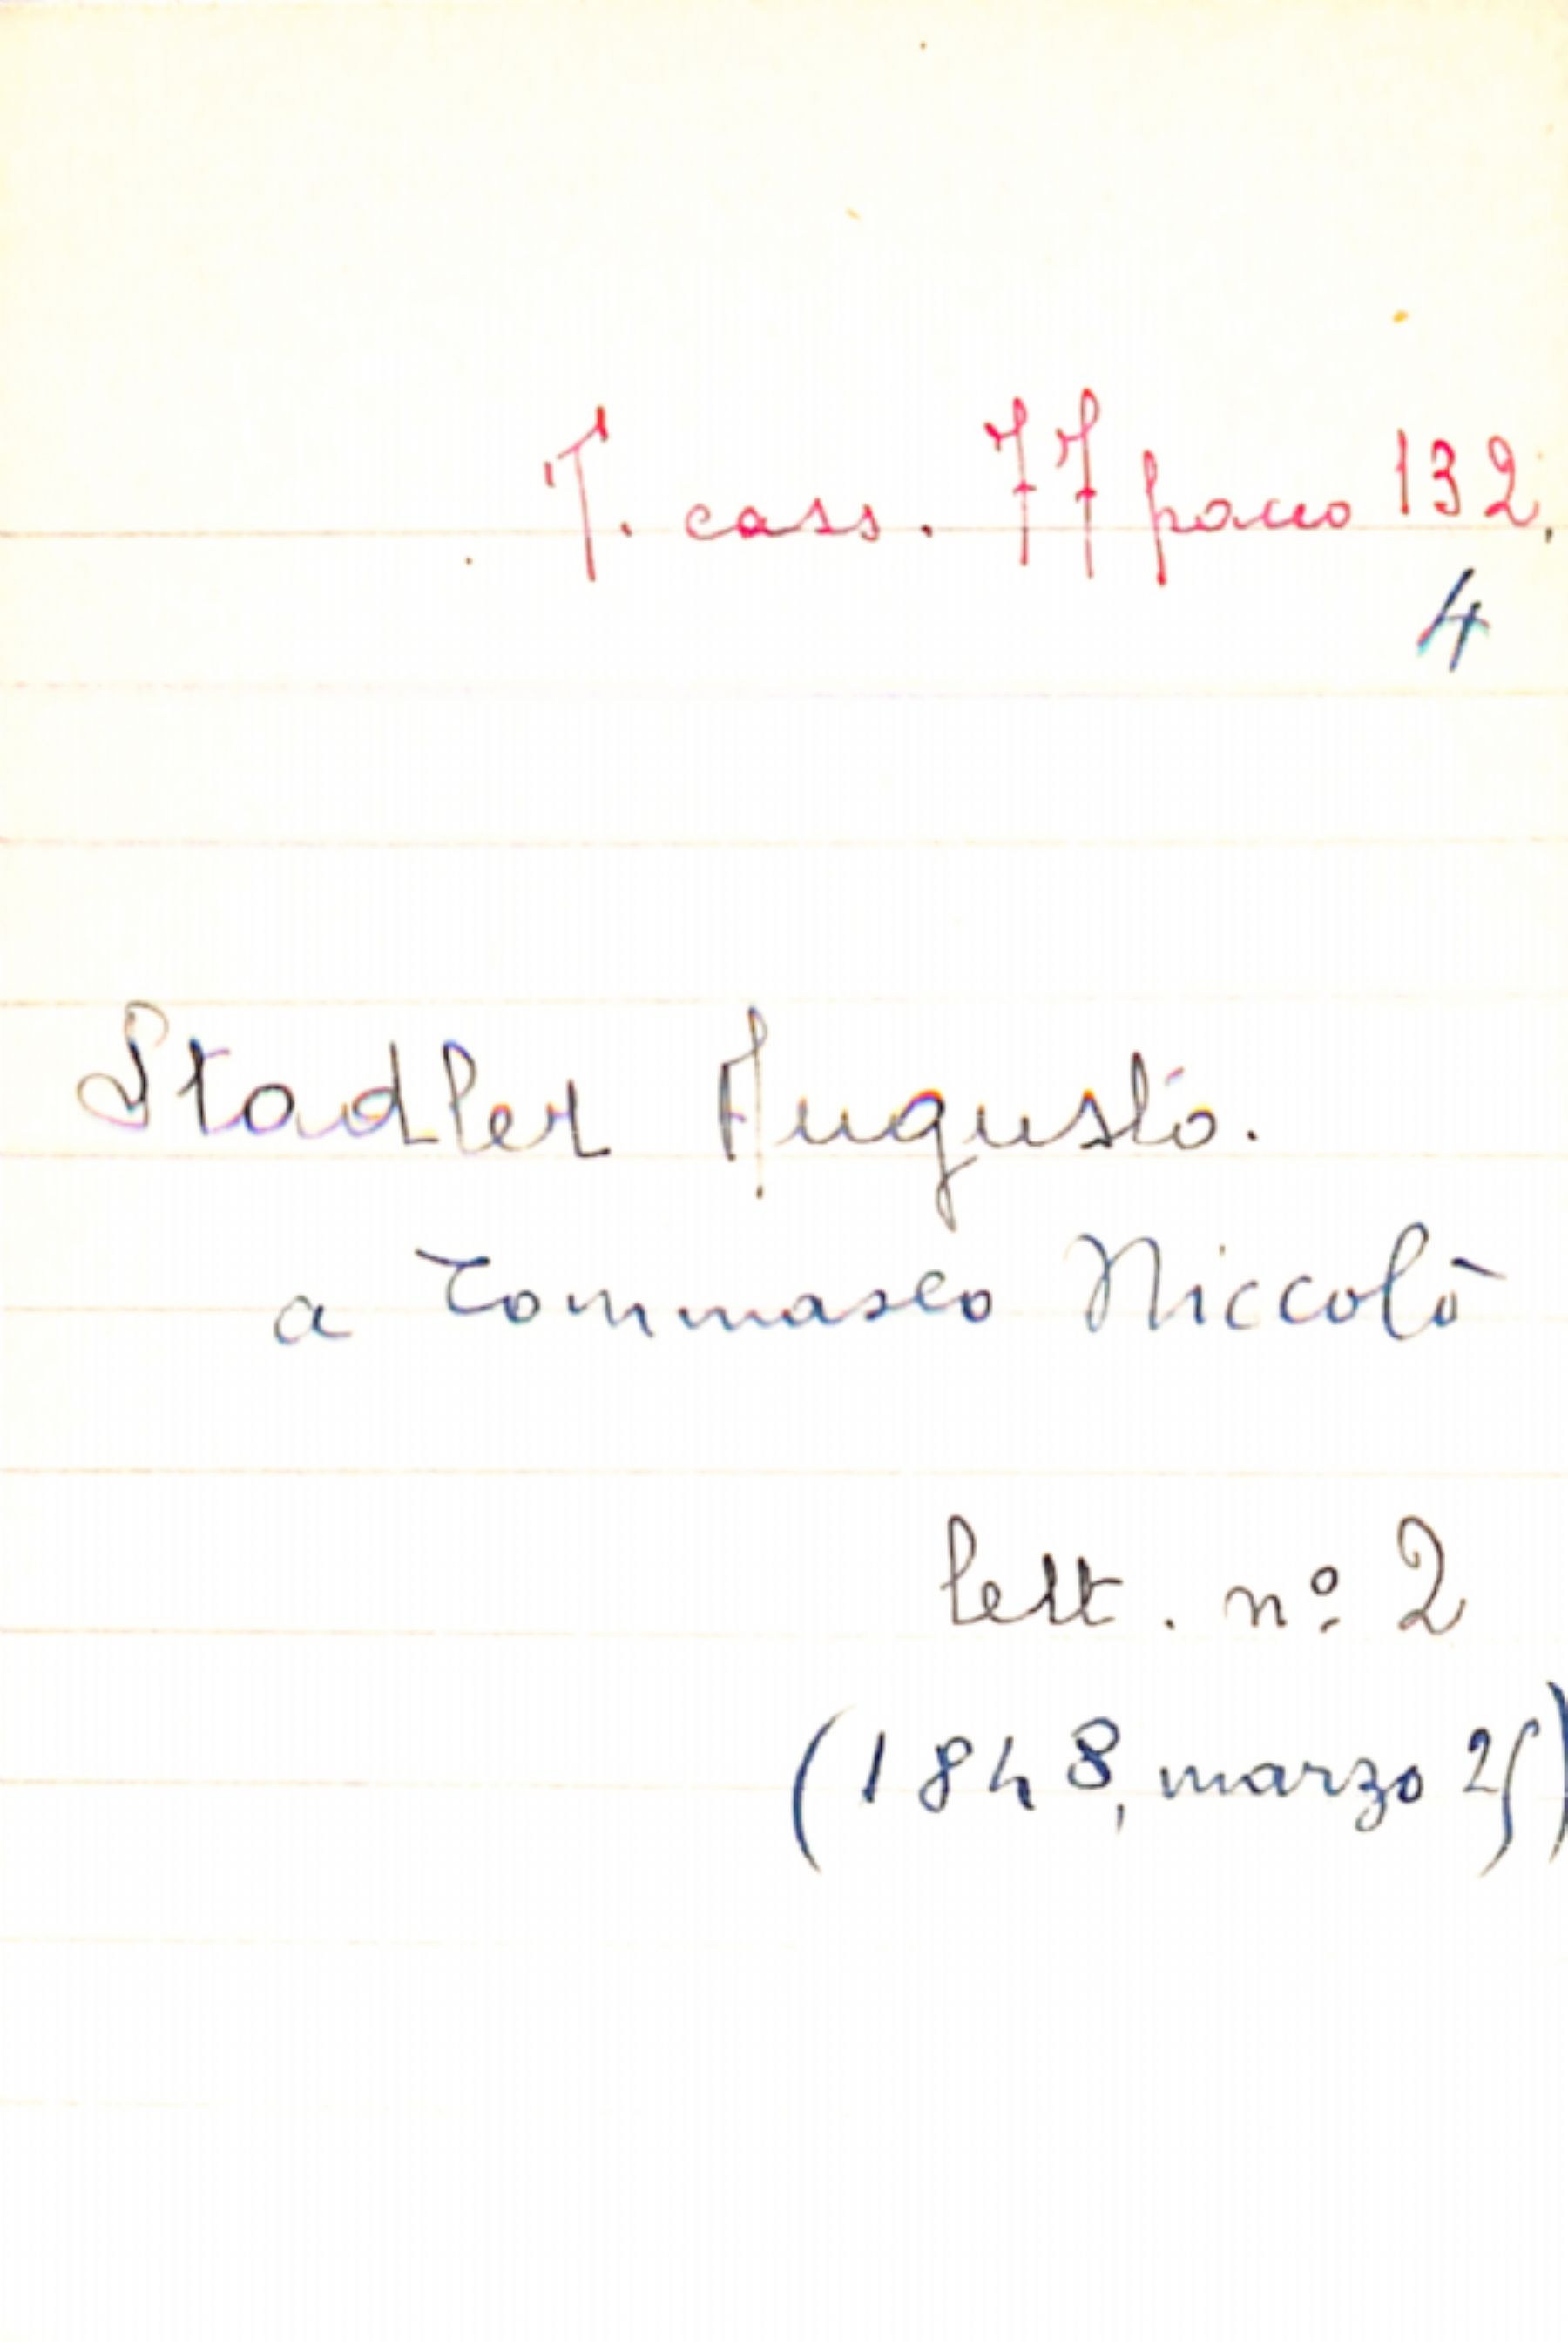 T. cass. 77 pacco 132.
4
Stadler Augusto.
a Tommaseo Niccolò
lett. nº 2
(1848, marzo 25)